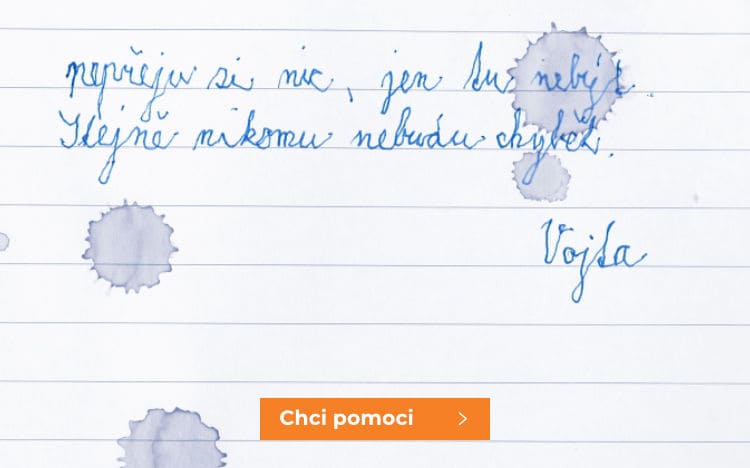 nepřeju si nic, jen tu nebýt.
Stejně nikomu nebudu chybět.
Vojta
Chci pomoci